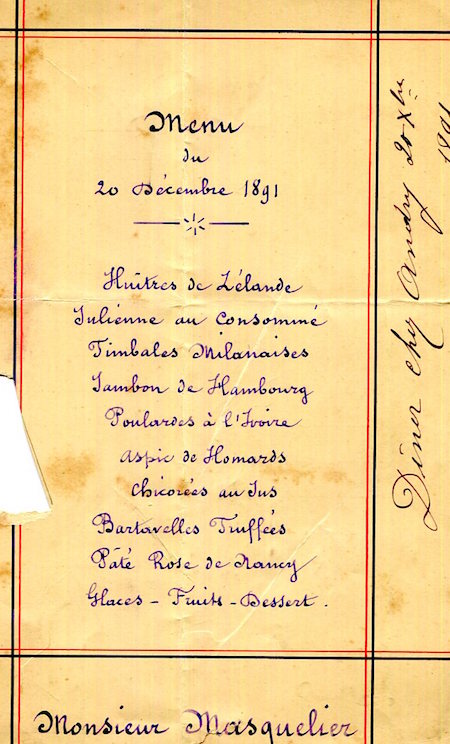 Menu
du
20 Décembre 1891
Huîtres de Zélande
Julienne au Consommé
Timbales Milanaises
Jambon de Hambourg
Poulardes à l'Ivoire
Aspic de Homards
Chicorées au Jus
Bartavelles Truffées
Pâté Rose de Nancy
Glaces - Fruits - Dessert.
Monsieur Masquelier
Dîner chez Andry 20 Xbre
1891